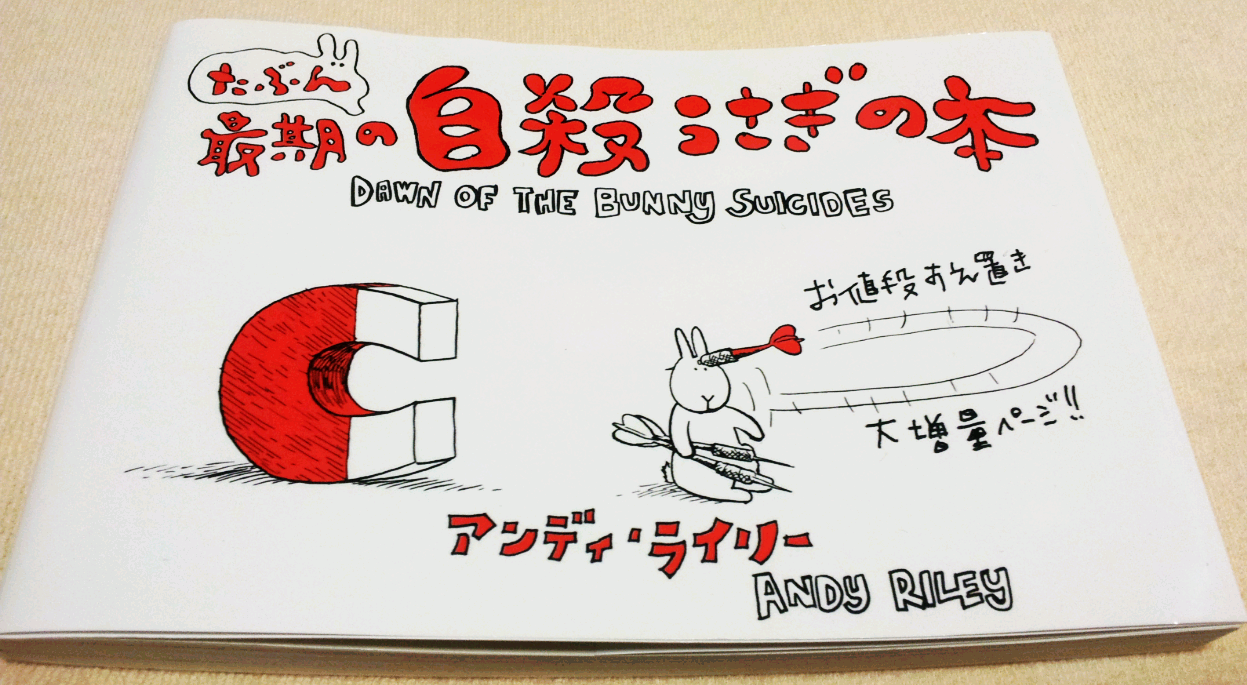 たぶん
最期の自殺うさぎの本
DAWN OF THE BUNNY SUICIDES
お値段すえ置き
大増量ページ!!
アンディ・ライリー
ANDY RILEY